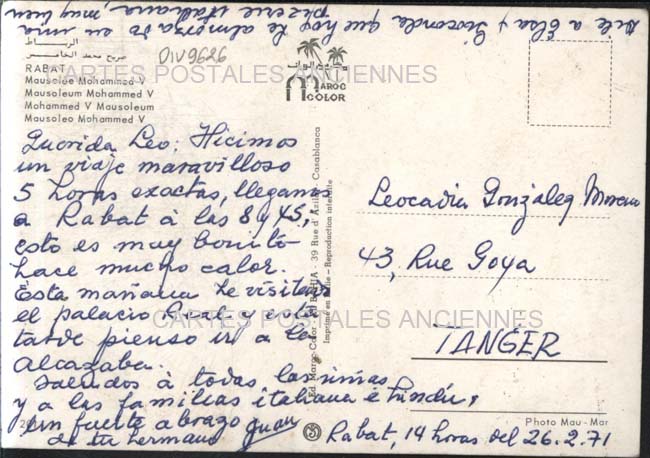 الرباط
ضريح محمد الخامس
RABAT
Mausolée Mohammed V
Mausoleum Mohammed V
Mohammed V Mausoleum
Mausoleo Mohammed V
DIV9626
MAROC
COLOR
CARTES POSTALES ANCIENNES
Querida Leo; Hicimos
un viaje maravilloso
5 horas exactas, llegamos
a Rabat à las 8 y 45,
esto es muy bonito
hace mucho calor.
Esta mañana he visitado
el palacio Real y esta
tarde pienso ir a la
Alcazaba.
Saludos à todas las niñas
y a las familias italiana é hindú,
un fuerte abrazo
de tu hermano Juan
Dile a Elsa y Gioconda que hoy he almorzado en una
pizzeria italiana, muy bien
Ed. Maroc Color - EL BAHIA - 39 Rue d'Azilal - Casablanca
Imprimé en Italie - Reproduction interdite
Leocadia González Moreno
43, Rue Goya
TANGER
CARTES POSTALES ANCIENNES
Photo Mau-Mar
Rabat, 14 horas del 26.2.71